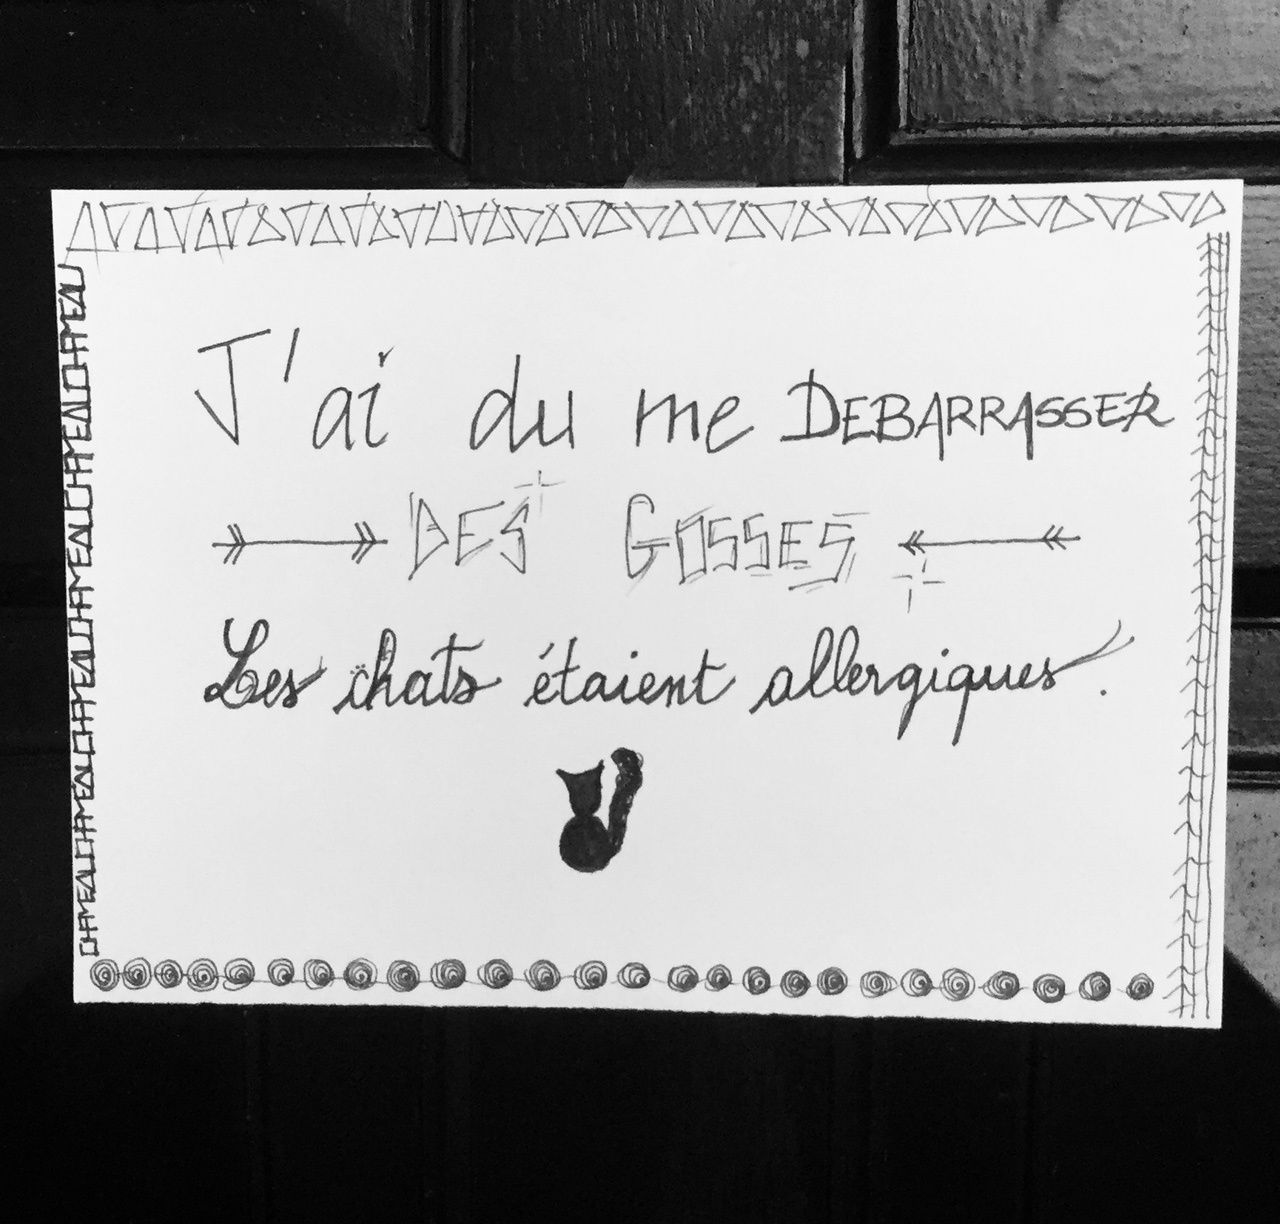 J'ai du me DEBARRASSER
DES GOSSES
Les chats étaient allergiques.
CHAMEAUCHAMEAUCHAMEAUCHAMEAUCHAMEAUCHAMEAUCHAMEAUCHAMEAU